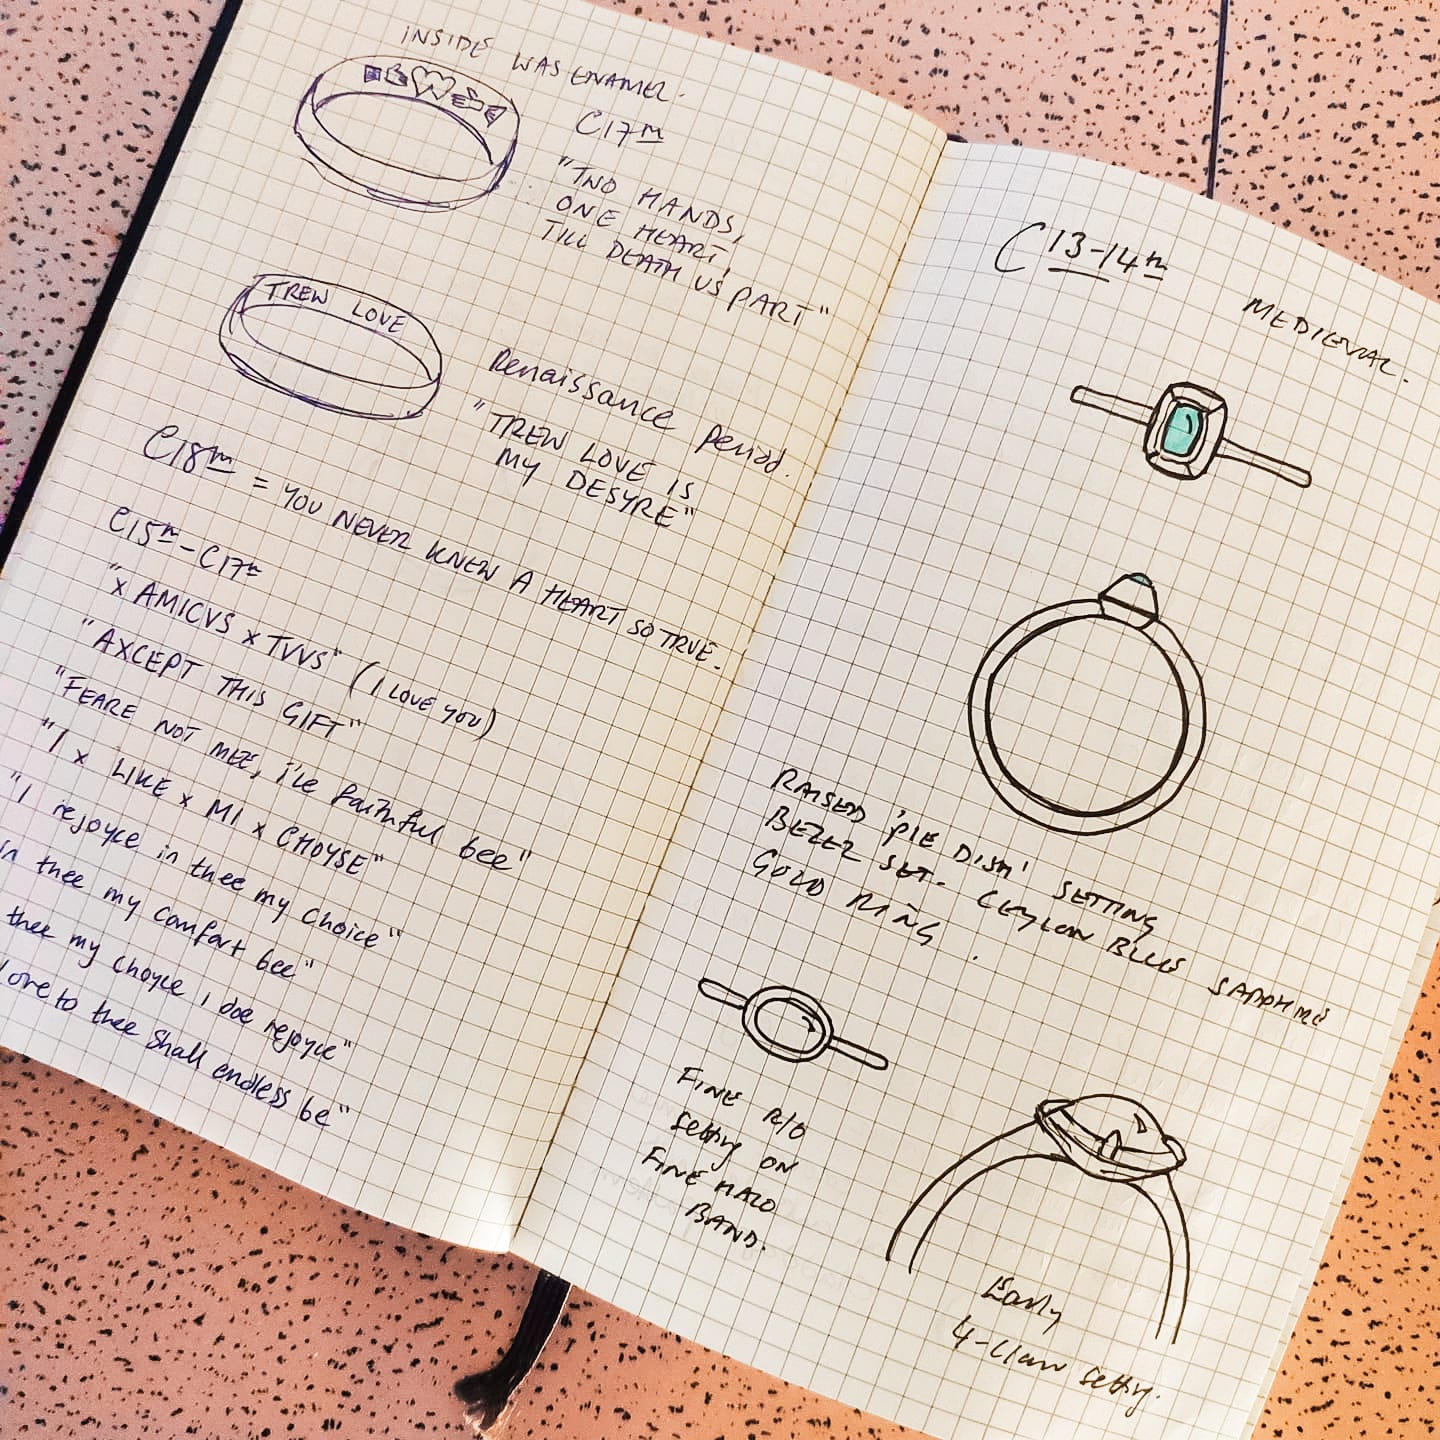 INSIDE WAS ENAMEL.
C17th
"TWO HANDS,
ONE HEART,
TILL DEATH US PART"
TREW LOVE
Renaissance period.
"TREW LOVE IS
MY DESYRE"
C18th = YOU NEVER KNEW A HEART SO TRUE.
C15th - C17th
"x AMICVS x TVVS" (I LOVE YOU)
"AXCEPT THIS GIFT"
"FEARE NOT MEE, i'le faithful bee"
"I x LIKE x MI x CHOYSE"
"I rejoyce in thee my choice"
in thee my comfort bee"
thee my choyce i doe rejoyce"
Love to thee shall endless be"
C13-14th
MEDIEVAL.
RAISED 'PIE DISH' SETTING
BEZEL SET. CEYLON BLUE SAPPHIRE
GOLD RING.
FINE R/O
setting ON
FINE HALO
BAND.
Early
4-claw setting.